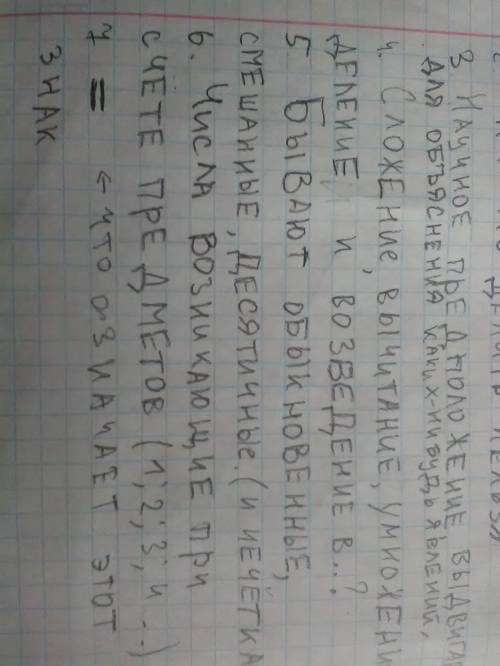 3 Научное предположение выдвига
для объяснения каких-нибудь явлений.
4. Сложение, вычитание, умножени
деление и возведение в..?
5 Бывают обыкновенные,
смешанные, десятичные. (и нечётка
6. Числа возникающие при
счете предметов (1, 2, 3, и ...)
7 = ← что означает этот
знак